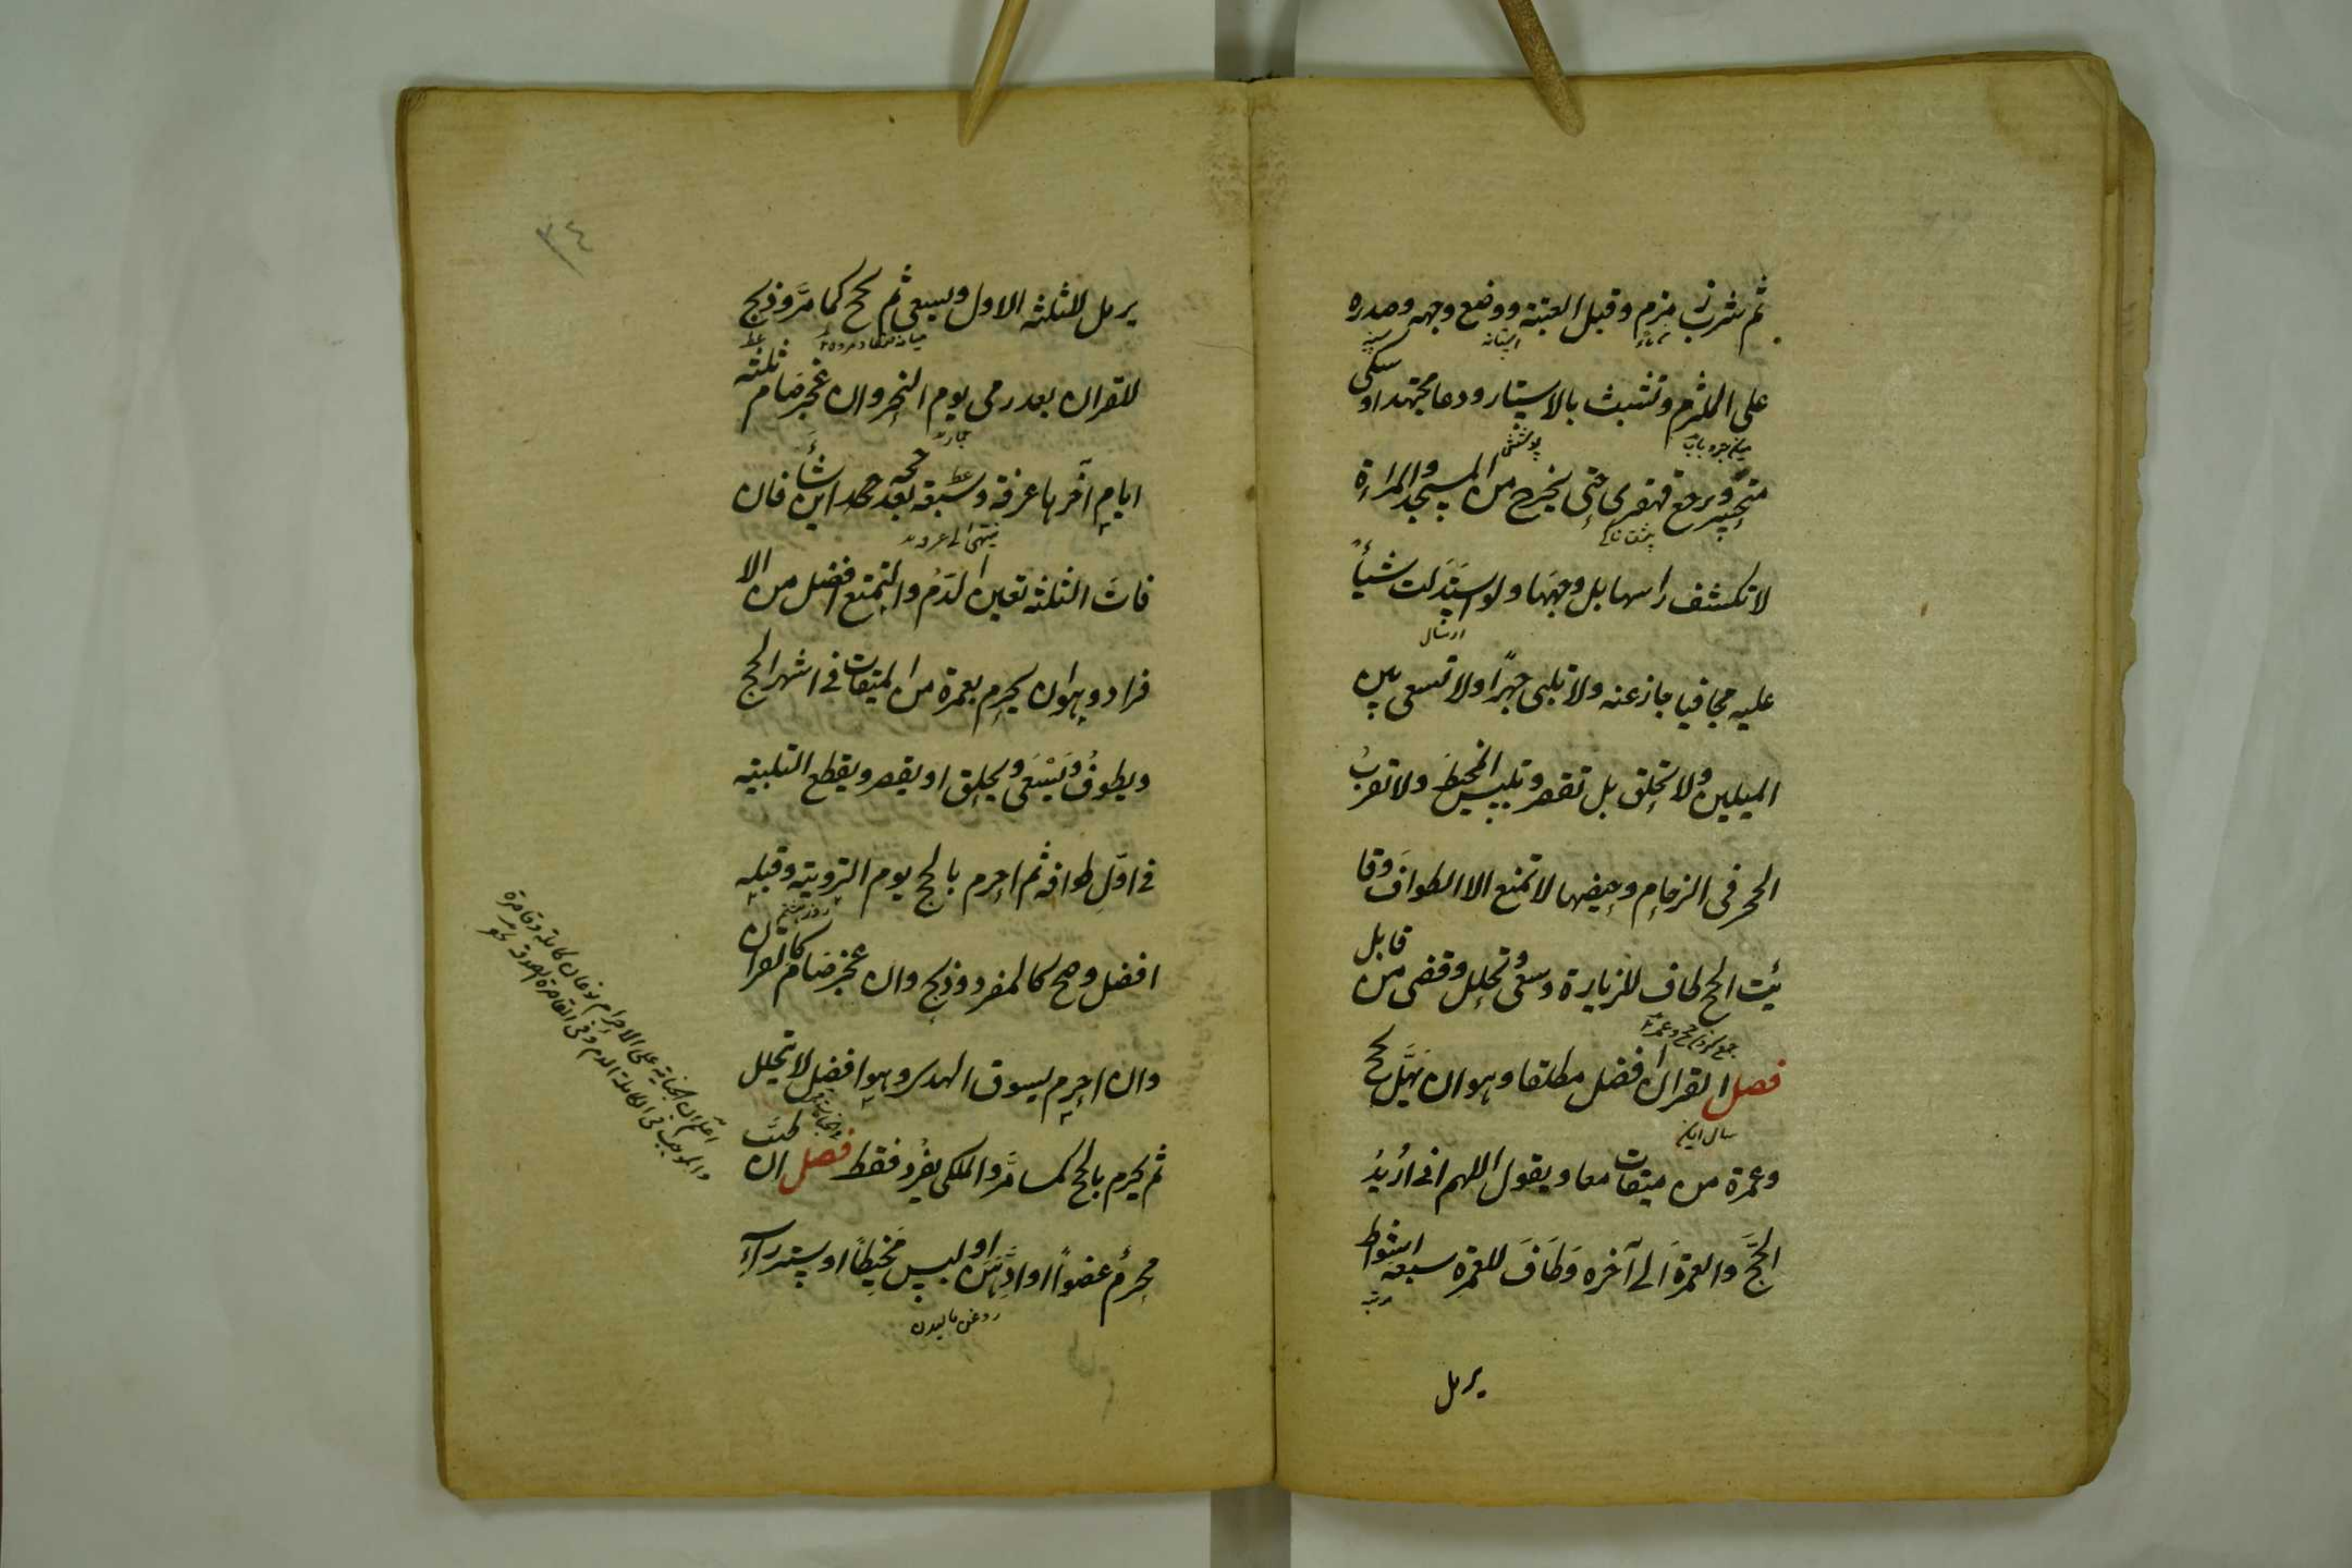 ثم شرب زمزم وقبل العتبة ووضع وجهه وصدره
آستانه
سینه
على الملتزم وتشبث بالاستار ودعا مجتهدا وبكى
پوشش
متحسرا ويرجع قهقرى حتى يخرج من المسجد والمراءة
لا تكشف راسها بل وجهها ولو استدلت شيأ
ارسال
عليه مجافيا جاز عنه ولا تلبى جهرًا ولا تسعى بين
الميلين ولا تحلق بل تقصر وتلبس المخيط ولا تقرب
الحجر فى الزحام وحيضها لا تمنع الا الطواف وفا
ئت الحج طاف للزيارة وسعى وتحلل وقضى من قابل
فصل القران افضل مطلقا وهو ان يهل بحج
وعمرة من ميقات معا ويقول اللهم انى اريد
الحج والعمرة الى آخره وطاف للعمرة سبعة اشواط
مرتبه
يرمل
٣٤
يرمل للثلثة الاول ويسعى ثم يحج كما مر وذبح
للقران بعد رمى يوم النحر وان عجز صام ثلثة
ايام آخرها عرفة وسبعة بعد حجه اين شاء فان
فات الثلثة تعين الدم والتمتع افضل من الا
فراد وهو ان يحرم بعمرة من الميقات فى اشهر الحج
ويطوف ويسعى ويحلق او يقصر ويقطع التلبية
فى اول طوافه ثم احرم بالحج يوم التروية وقبله
روز هشتم
افضل وحج كالمفرد وذبح وان عجز صام كالقران
وان احرم بسوق الهدى وهو افضل لا يتحلل
ثم يحرم بالحج كما مر والمكى يفرد فقط فصل ان طيب
محرم عضوًا او ادهن او لبس مخيطًا او ستر رأسه
روغن ماليدن
اعلم ان الجناية على الاحرام نوعان كاملة وقاصرة
والموجب فى الكاملة الدم وفى القاصرة الصدقة